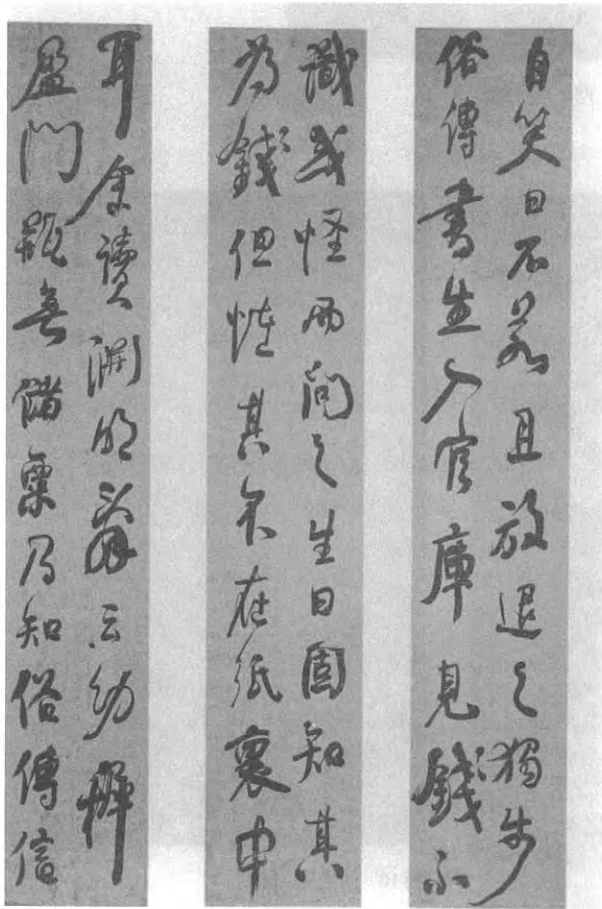 自笑曰不若且放退之獨步
俗傳書生入官庫見錢不
識或怪而問之生曰固知其
為錢但怪其不在紙裹中
耳余讀淵明辭云幼稚
盈門瓶無儲粟乃知俗傳信